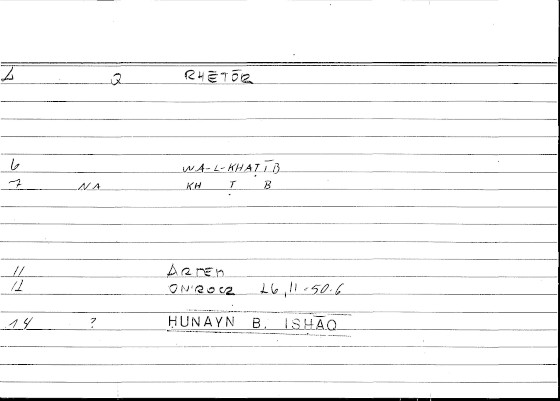 Q RHĒTŌR
6 WA-L-KHAṬĪB
7 NA KH Ṭ B
11 ARTEM
12 ONIROCR 26,11-50.6
14 ? ḤUNAYN B. ISḤĀQ